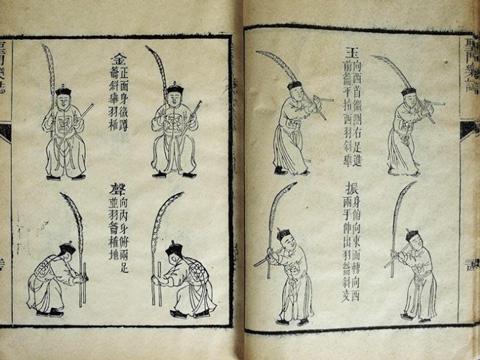 聖門樂誌
玉
向西首微側右足進
前籥平指西羽斜舉
振
身俯向東面轉向西
兩手伸出羽籥斜交
金
正面身微蹲
籥斜舉羽植
聲
向內身俯兩足
並羽籥植地
聖門樂誌